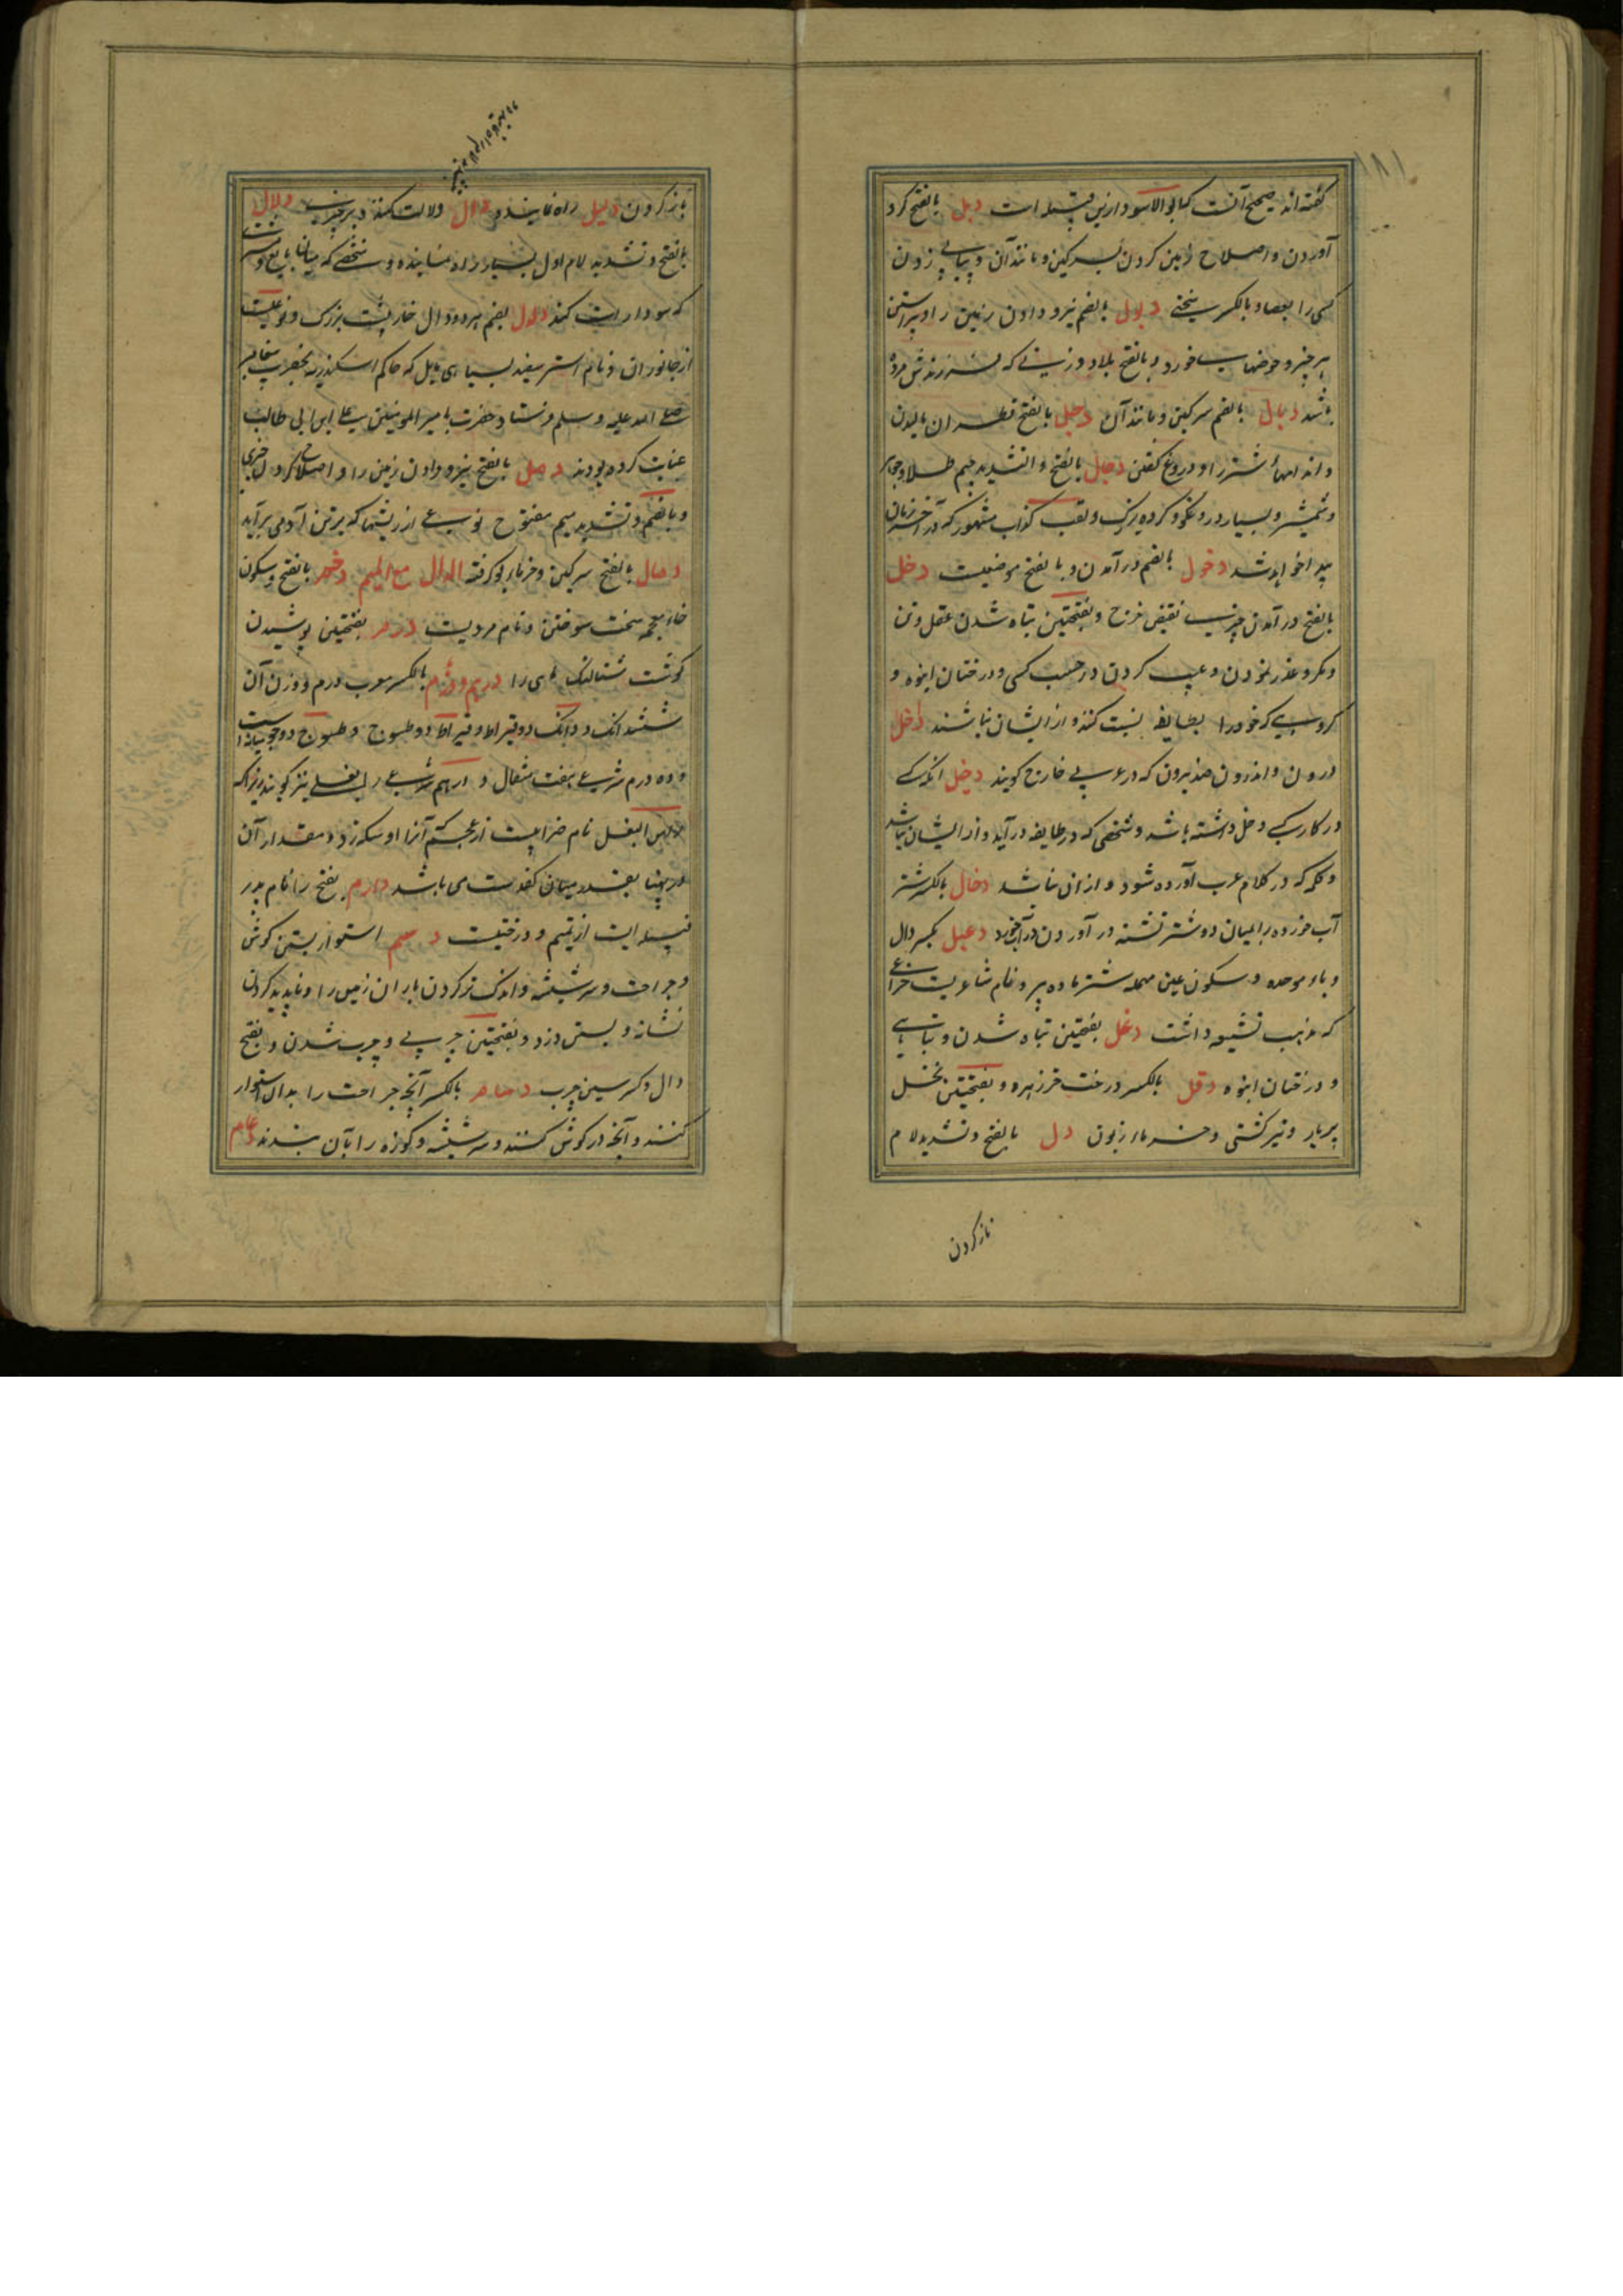 گفته‌اند صحیح آنست که ابو الاسود ازین قبیله است دبل بالفتح گرد
آوردن و اصلاح زمین کردن بسرکین و مانند آن و پیاپی زدن
کسی را بعصا و بالکسر سختی دبول بالضم نیرو دادن زمین را و پیراستن
هر چیز و حوضهای خورد و بالفتح بلا و زنی که فرزندش مرده
باشد دبال بالضم سرکین و مانند آن دجل بالفتح قطران مالیدن
و اندامهای شتر را و دروغ گفتن دجال بالفتح و التشدید جیم طلا و جوهر
و شمشیر و بسیار دروغگو و گروه بزرگ و لقب کذاب مشهور که در آخر زمان
پیدا خواهد شد دخول بالضم در آمدن و بالفتح موضعیست دخل
بالفتح در آمدن چیزی نقیض خرج و بفتحتین تباه شدن عقل و تن
و مکر و غدر نمودن و عیب کردن در حسب کسی و درختان انبوه و
گروهی که خود را بطایفه نسبت کنند و از ایشان نباشند داخل
درون و اندرون ضد بیرون که در عربی خارج گویند دخیل آنکه
در کار کسی دخل داشته باشد و شخصی که در طایفه در آید و از ایشان نباشد
و کلمه که در کلام عرب آورده شود و از ان نباشد دخال بالکسر شتر
آب خورده را میان دو شتر تشنه در آوردن در آبخورد دعبل بکسر دال
و باء موحده و سکون عین مهمله شتر ماده پیر و نام شاعریست خزاعی
که مذهب تشیع داشت دغل بفتحتین تباه شدن و تباهی
و درختان انبوه دقل بالکسر درخت خرزهره و بفتحتین نخل
پربار و تیر کشتی و خرمای زبون دل بالفتح و تشدید لام
ناز کردن
ناز کردن دلیل راه نماینده و دال دلالت کننده بر چیزی دلال
بالفتح و تشدید لام اول بسیار راه نماینده و شخصی که میان بایع و مشتری
که سودا راست کند دلدل بضم هر دو دال خارپشت بزرگ و نوعیست
از جانوران و نام استر سفید بسیاهی مایل که حاکم اسکندریه بحضرت پیغامبر
صلی الله علیه و سلم فرستاد و حضرت بامیر المومنین علی ابن ابی طالب
عنایت کرده بودند دمل بالفتح نیرو دادن زمین را و اصلاح کردن چیزی
و بالضم و تشدید میم مفتوح نوعی از ریشها که بر تن آدمی برآید
دمال بالفتح سرکین و خرمای بو گرفته الدال مع المیم دخم بالفتح و سکون
خاء معجمه سخت سوختن و نام مردیست درم بفتحتین پوشیدن
گوشت شتالنگ پای را درهم و درم بالکسر معرب درم و وزن آن
شش دانگ و دانگ دو قیراط و قیراط دو طسوج و طسوج دو جو میانه است
و ده درم شرعی هفت مثقال و درهم شرعی را بغلی نیز گویند زیرا که
راس البغل نام ضرابیست از عجم که آنرا او سکه زد و مقدار آن
در پهنا بقدر میان کف دست می باشد دارم بفتح را نام پدر
قبیله ایست از تمیم و درختیست دسم استوار بستن گوش
و جراحت و سر شیشه و اندک تر کردن باران زمین را و ناپدید کردن
نشانه و بستن در و بفتحتین چربی و چرب شدن و بفتح
دال و کسر سین چرب دسام بالکسر آنچه جراحت را بدان استوار
کنند و آنچه در گوش کنند و سر شیشه و کوزه را بآن بندند دعام